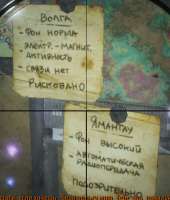 ВОЛГА
- ФОН НОРМА
ЭЛЕКТР. - МАГНИТ.
АКТИВНОСТЬ
- СВЯЗИ НЕТ
РИСКОВАНО
ЯМАНТАУ
- ФОН ВЫСОКИЙ
- АВТОМАТИЧЕСКАЯ
РАДИОПЕРЕДАЧА
ПОДОЗРИТЕЛЬНО